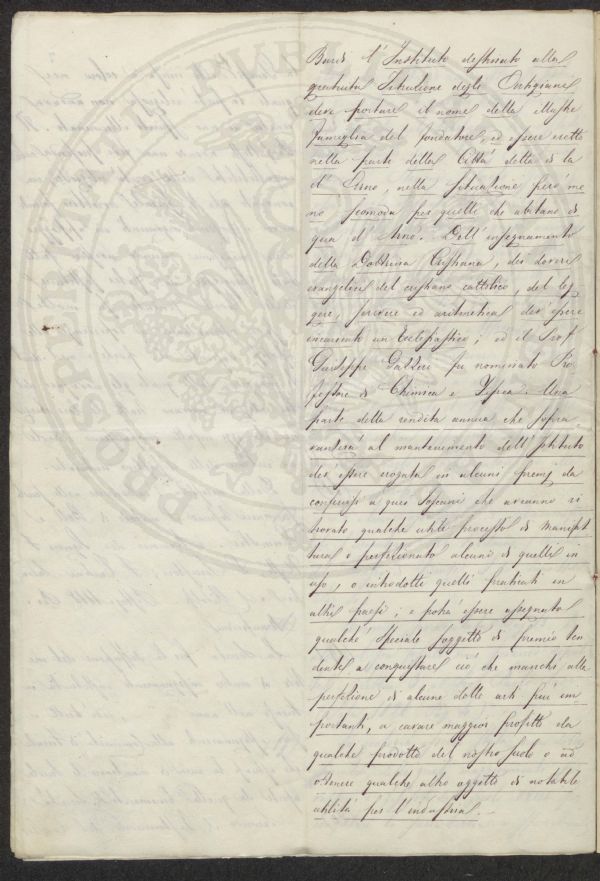 Bardi l'Instituto destinato alla
gratuita Istruzione degli Artigiani
deve portare il nome della illustre
famiglia del fondatore, ed essere eretto
nella parte della Città detta di là
d'Arno, nella situazione però me
no scomoda per quelli che abitano di
qua d'Arno. Dell'insegnamento
della Dottrina Cristiana, dei doveri
evangelici del cristiano cattolico, del leg
gere, scrivere ed aritmetica dev'essere
incaricato un Ecclesiastico; ed il Prof
Giuseppe Gazzeri fu nominato Pro
fessore di Chimica e Fisica. Una
parte della rendita annua che soprav
vanzerà al mantenimento dell'Istituto
dev essere erogata in alcuni premj da
conferirsi a quei Toscani che avranno ri
trovato qualche utile processo di Manifat
tura o perfezionato alcuni di quelli in
uso, o introdotti quelli praticati in
altri paesi; e potrà essere assegnato
qualche speciale soggetto di premio ten
dente a conquistare ciò che manchi alla
perfezione di alcune delle arti più im
portanti, a cavare maggior profitto da
qualche prodotto del nostro suolo o ad
ottenere qualche altro oggetto di notabile
utilità per l'industria.